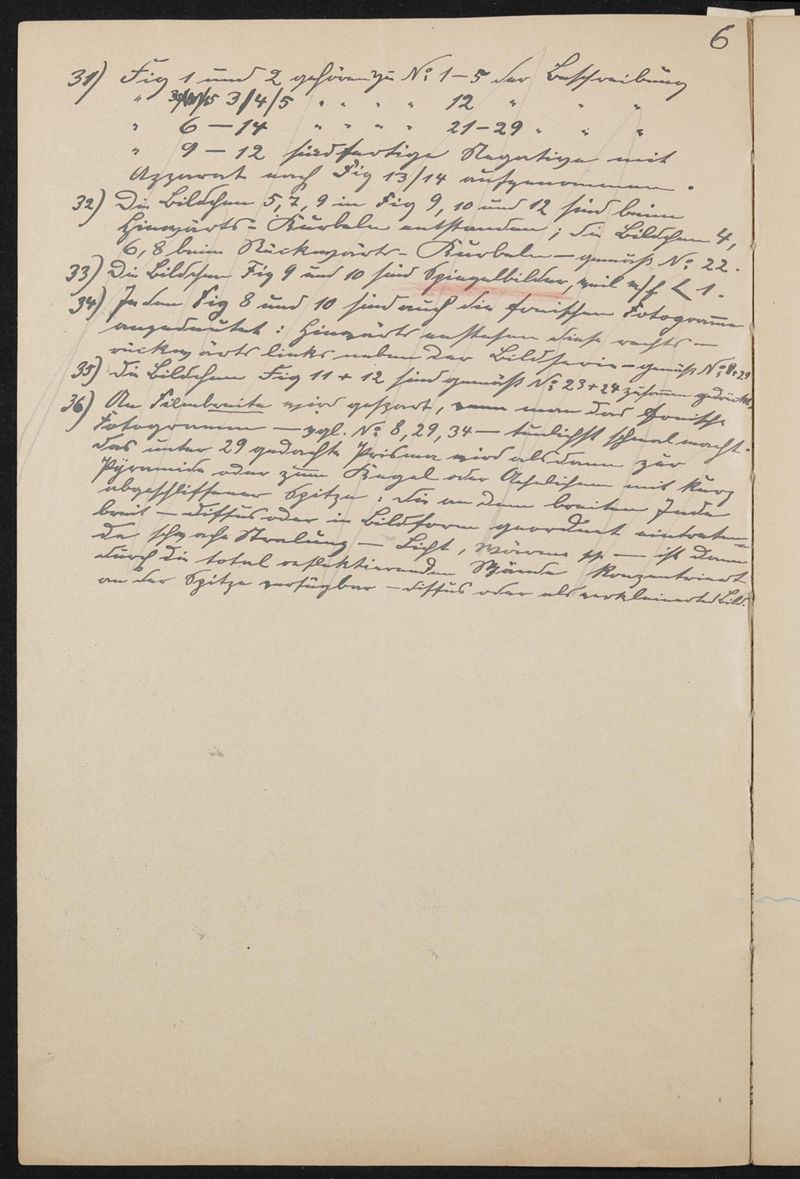 6
31) Fig 1 und 2 gehören zu No: 1–5 der Beschreibung
" 3/4/5 " " " " 12 " " "
" 6–14 " " " " 21–29 " " "
" 9–12 sind fertige Negative mit
Apparat nach Fig 13/14 aufgenommen.
32) Die Bildchen 5, 7, 9 in Fig 9, 10 und 12 sind beim
Hinwärts-Kurbeln entstanden; die Bildchen 4,
6, 8 beim Rückwärts-Kurbeln – gemäß No: 22.
33) Die Bildchen Fig 9 und 10 sind Spiegelbilder, weil < 1.
34) In den Fig 8 und 10 sind auch die fonischen Fotogramme
angedeutet: Hinwärts entstehen diese rechts –
rückwärts links neben der Bildserie – gemäß No: 8+29
35) die Bildchen Fig 11 + 12 sind gemäß No: 23+24 zusammen gedrückt.
36) An Filmbreite wird gespart, wenn man das fonische
Fotogramm – vgl. No: 8, 29, 34 – tunlichst schmal macht.
Das unter 29 gedachte Prisma wird alsdann zur
Pyramide oder zum Kegel oder Aehnlichem mit kurz
abgeschliffener Spitze; die an dem breiten Ende
breit – diffus oder in Bildform geordnet eintreten-
de schwache Stralung – Licht, Wärme – ist dann
durch die total reflektierenden Wände konzentriert
an der Spitze verfügbar – diffus oder als verkleinertes Bild.